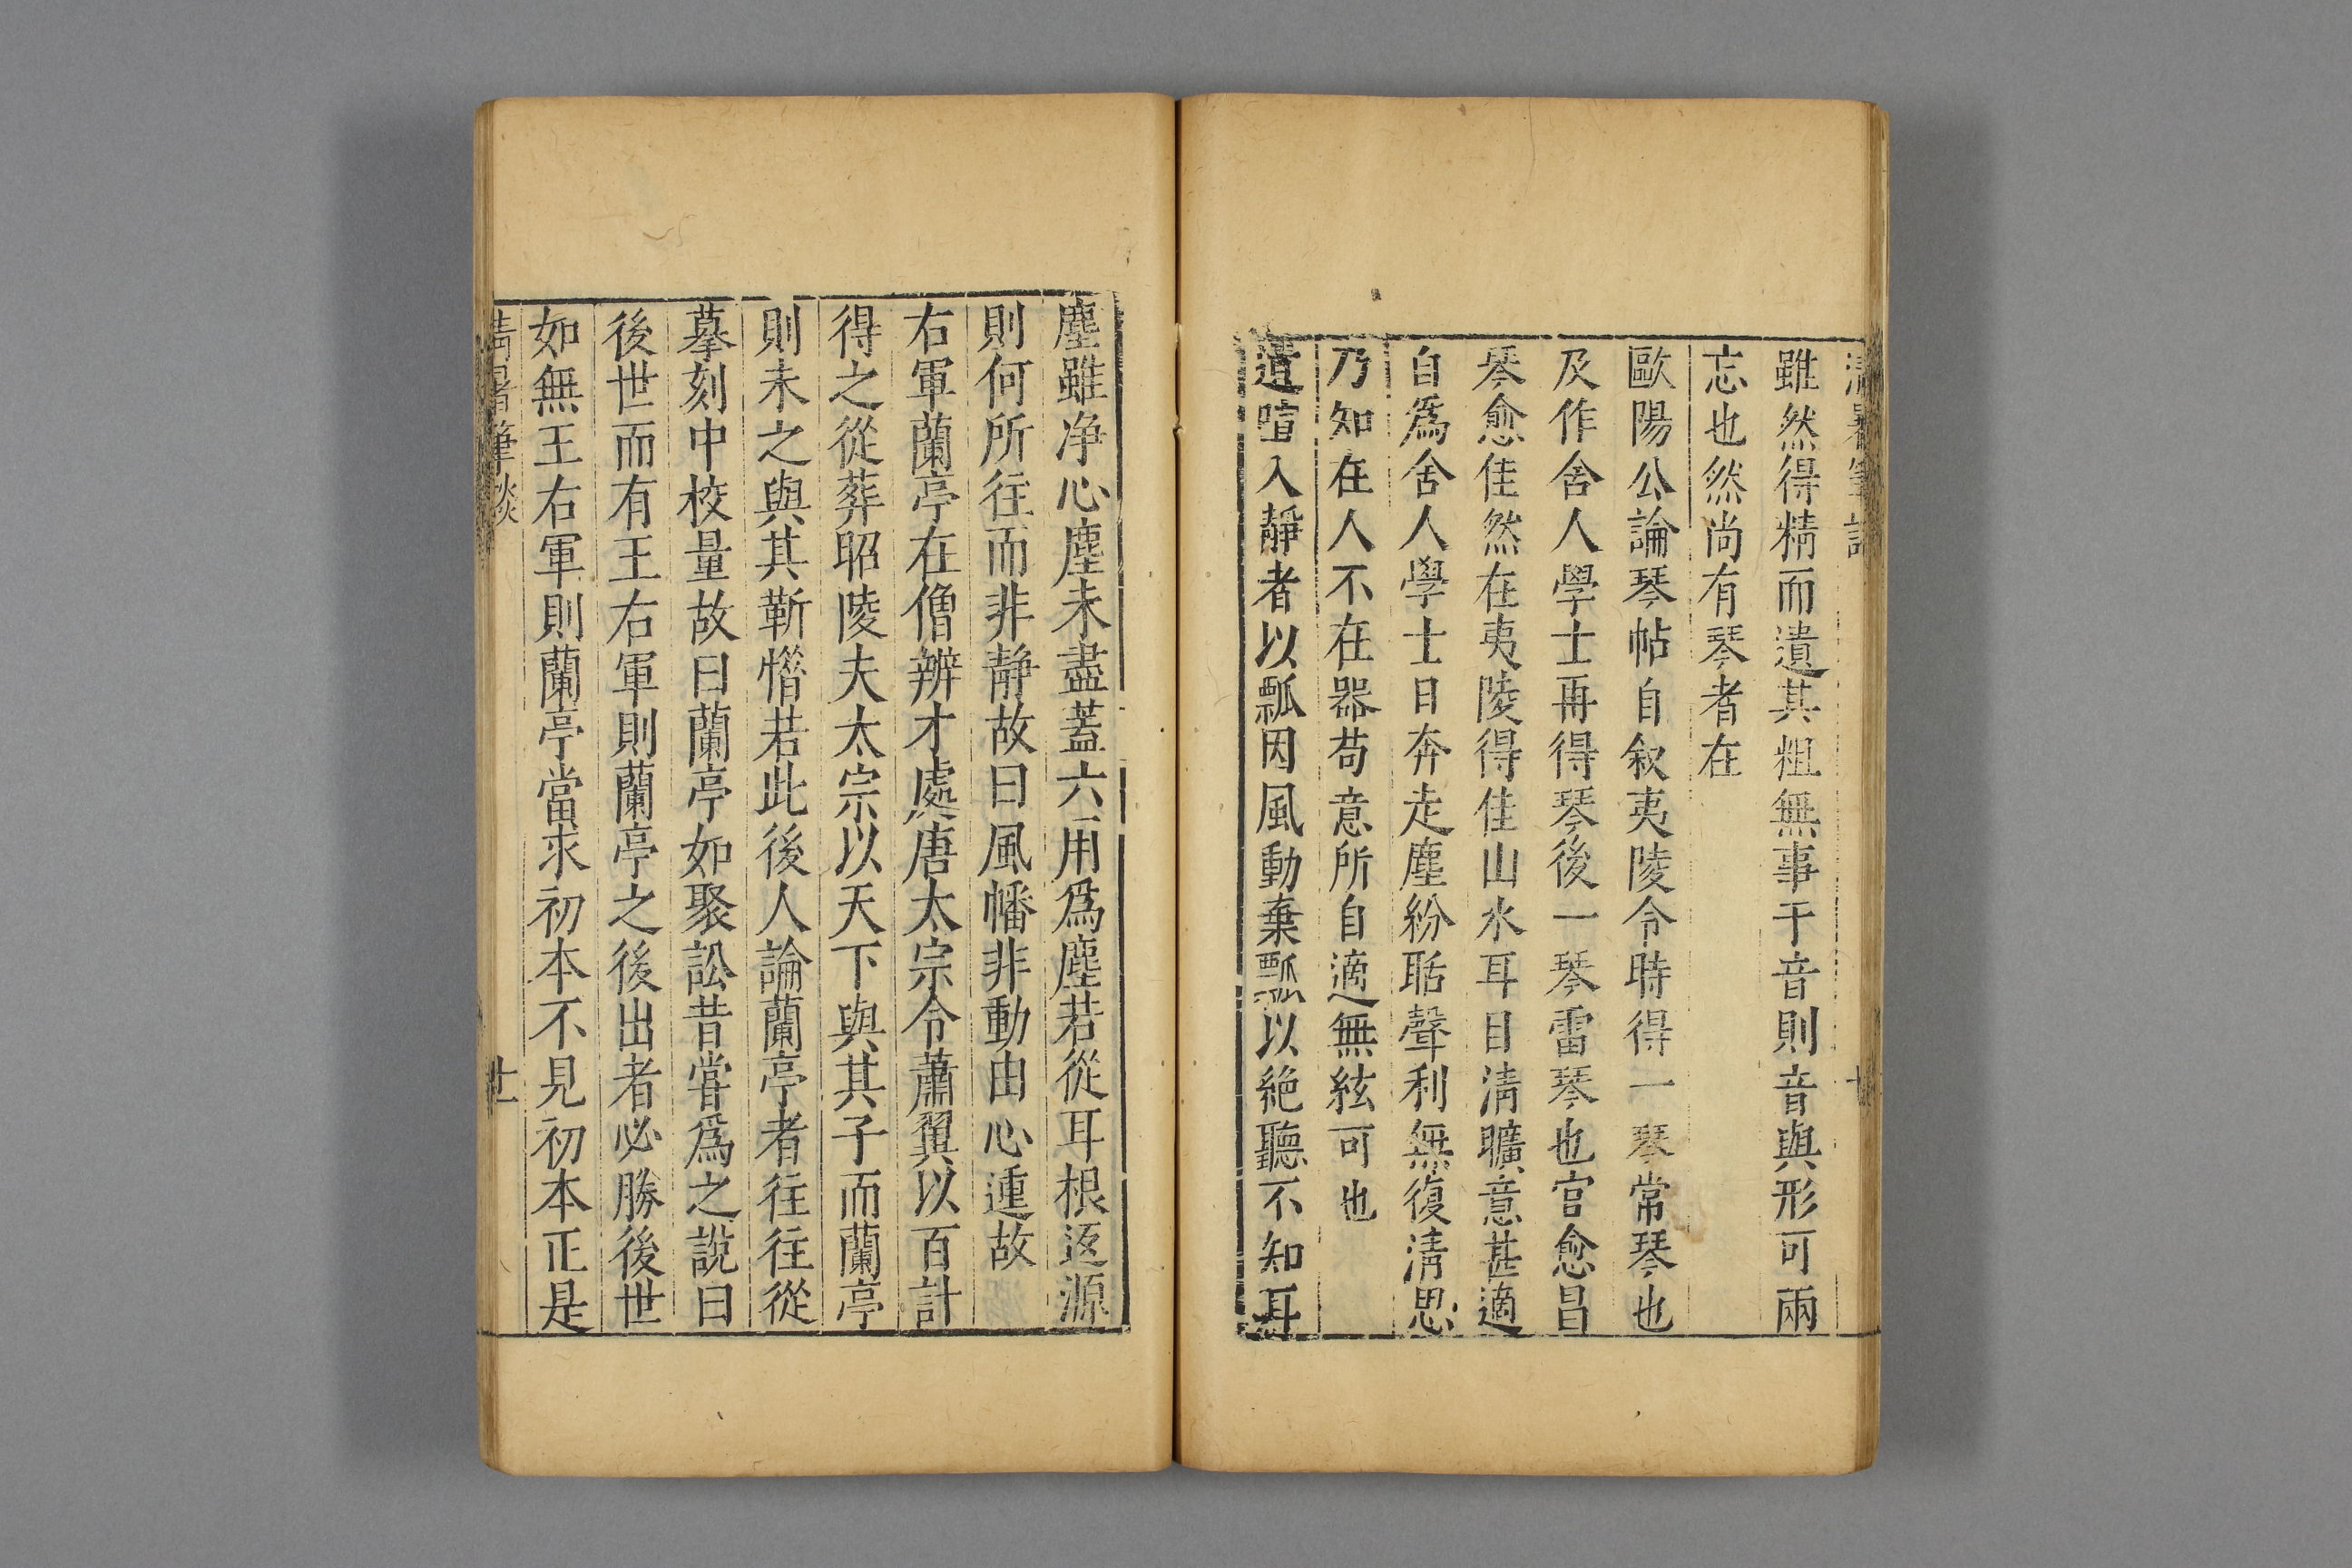 雖然得精而遺其粗無事于音則音與形可兩
忘也然尚有琴者在
歐陽公論琴帖自叙夷陵令時得一琴常琴也
及作舍人學士再得琴後一琴雷琴也官愈昌
琴愈佳然在夷陵得佳山水耳目清曠意甚適
自爲舍人學士日奔走塵紛聒聲利無復清思
乃知在人不在器苟意所自適無絃可也
遺喧入靜者以瓢因風動棄瓢以絶聽不知耳
塵雖净心塵未盡蓋六用爲塵若從耳根返源
則何所往而非靜故曰風幡非動由心運故
右軍蘭亭在僧辨才處唐太宗令蕭翼以百計
得之從葬昭陵夫太宗以天下與其子而蘭亭
則未之與其靳惜若此後人論蘭亭者往往從
摹刻中校量故曰蘭亭如聚訟昔嘗爲之說曰
後世而有王右軍則蘭亭之後出者必勝後世
如無王右軍則蘭亭當求初本不見初本正是
清暑筆談